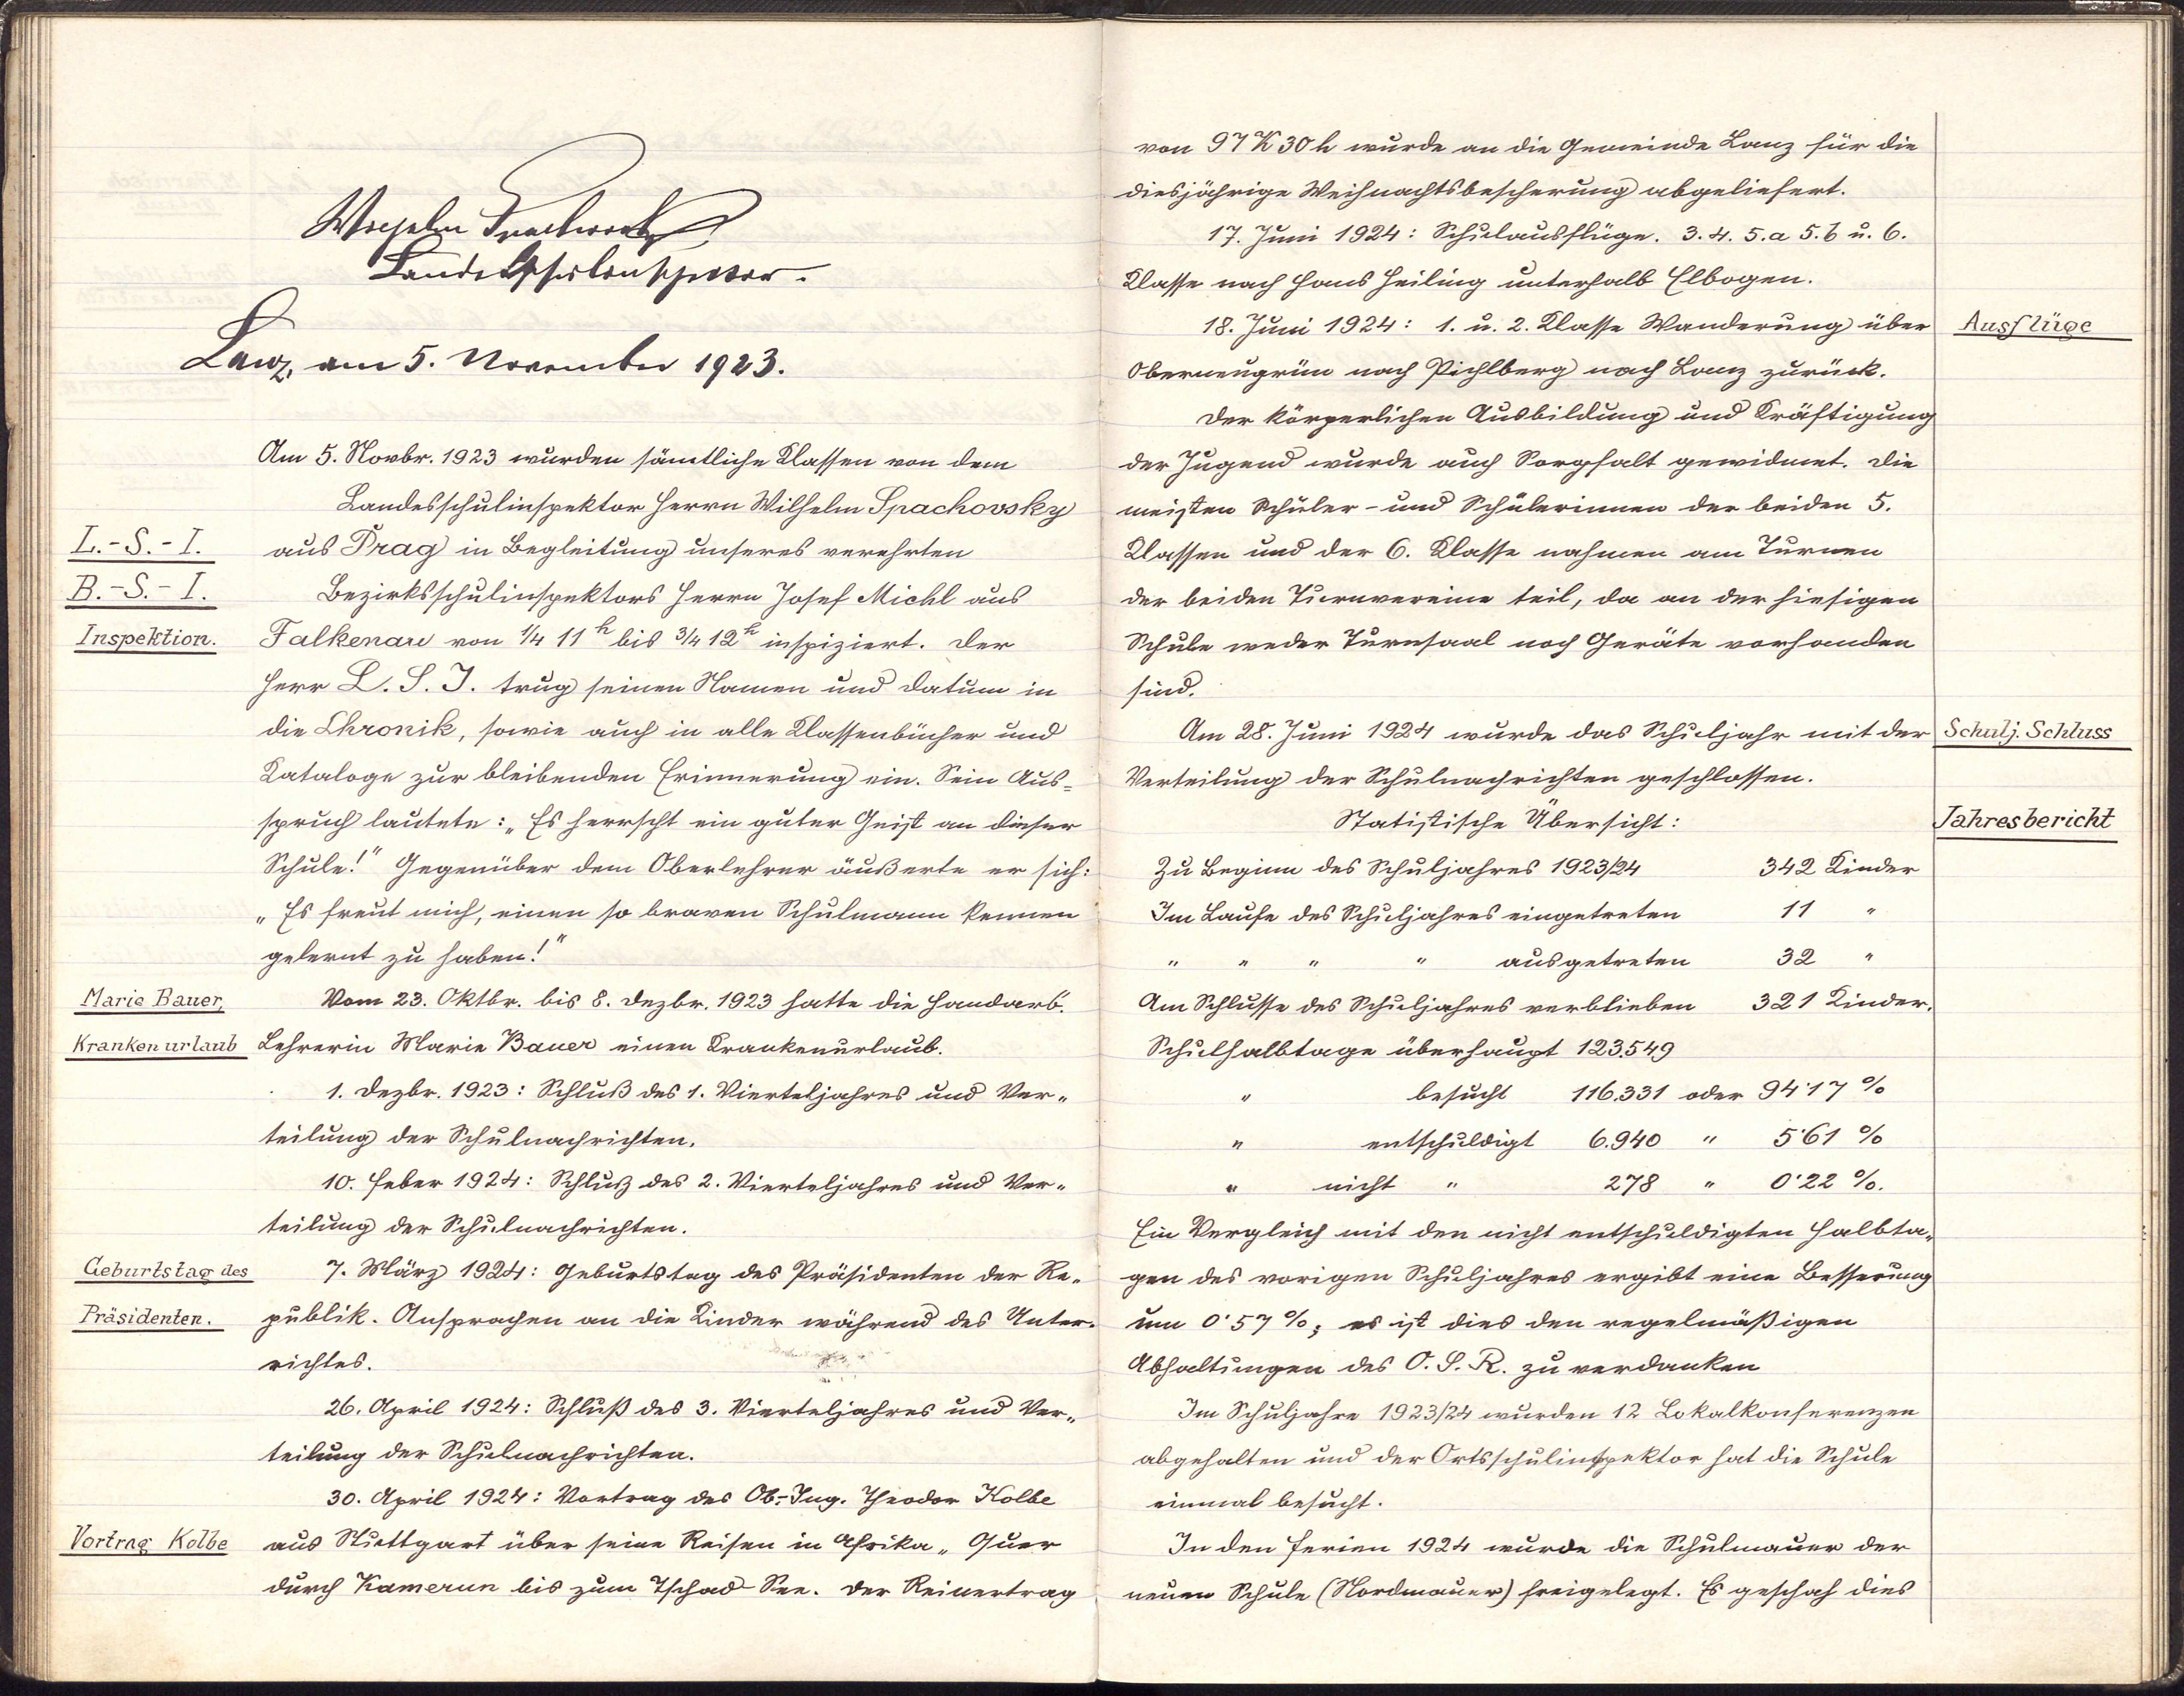 Wilhelm
Landesschulinspektor.
Lanz, am 5. November 1923.
Am 5. Novbr. 1923 wurden sämtliche Klassen von dem
Landesschulinspektor Herrn Wilhelm Spachovsky
L.-S.-I.
aus Prag in Begleitung unseres verehrten
B.-S.-I.
Bezirksschulinspektors Herrn Josef Michl aus
Inspektion.
Falkenau von 1/4 11 h bis 3/4 12 h inspiziert. Der
Herr L. S. I. trug seinen Namen und Datum in
die Chronik, sowie auch in alle Klassenbücher und
Kataloge zur bleibenden Erinnerung ein. Sein Aus=
spruch lautete: „Es herrscht ein guter Geist an dieser
Schule!" Gegenüber dem Oberlehrer äußerte er sich:
„Es freut mich, einen so braven Schulmann kennen
gelernt zu haben!"
Marie Bauer,
Vom 23. Oktbr. bis 8. Dezbr. 1923 hatte die Handarb.
Krankenurlaub
Lehrerin Marie Bauer einen Krankenurlaub.
1. Dezbr. 1923: Schluß des 1. Vierteljahres und Ver„
teilung der Schulnachrichten.
10. Feber 1924: Schluß des 2. Vierteljahres und Ver„
teilung der Schulnachrichten.
Geburtstag des
7. März 1924: Geburtstag des Präsidenten der Re„
Präsidenten.
publik. Ansprachen an die Kinder während des Unter„
richtes.
26. April 1924: Schluß des 3. Vierteljahres und Ver„
teilung der Schulnachrichten.
30. April 1924: Vortrag des Ob.-Ing. Theodor Kolbe
Vortrag Kolbe
aus Stuttgart über seine Reisen in Afrika „Quer
durch Kamerun bis zum Tschad-See. Der Reinertrag
von 97 K 30 h wurde an die Gemeinde Lanz für die
diesjährige Weihnachtsbescherung abgeliefert.
17. Juni 1924: Schulausflüge. 3. 4. 5.a 5.b u. 6.
Klasse nach Hans Heiling unterhalb Elbogen.
18. Juni 1924: 1. u. 2. Klasse Wanderung über
Ausflüge
Oberneugrün nach Pichlberg nach Lanz zurück.
Der körperlichen Ausbildung und Kräftigung
der Jugend wurde auch Sorgfalt gewidmet. Die
meisten Schüler- und Schülerinnen der beiden 5.
Klassen und der 6. Klasse nahmen am Turnen
der beiden Turnvereine teil, da an der hiesigen
Schule weder Turnsaal noch Geräte vorhanden
sind.
Am 28. Juni 1924 wurde das Schuljahr mit der
Schulj. Schluss
Verteilung der Schulnachrichten geschlossen.
Statistische Übersicht:
Jahresbericht
Zu Beginn des Schuljahres 1923/24 342 Kinder
Im Laufe des Schuljahres eingetreten 11 "
" " " " ausgetreten 32 "
Am Schlusse des Schuljahres verblieben 321 Kinder.
Schulhalbtage überhaupt 123.549
" besucht 116.331 oder 94·17 %
" entschuldigt 6.940 " 5·61 %
" nicht " 278 " 0·22 %.
Ein Vergleich mit den nicht entschuldigten Halbta„
gen des vorigen Schuljahres ergibt eine Besserung
um 0·57 %; es ist dies den regelmäßigen
Abhaltungen des O. S. R. zu verdanken
Im Schuljahre 1923/24 wurden 12 Lokalkonferenzen
abgehalten und der Ortsschulinspektor hat die Schule
einmal besucht.
In den Ferien 1924 wurde die Schulmauer der
neuen Schule (Nordmauer) freigelegt. Es geschah dies